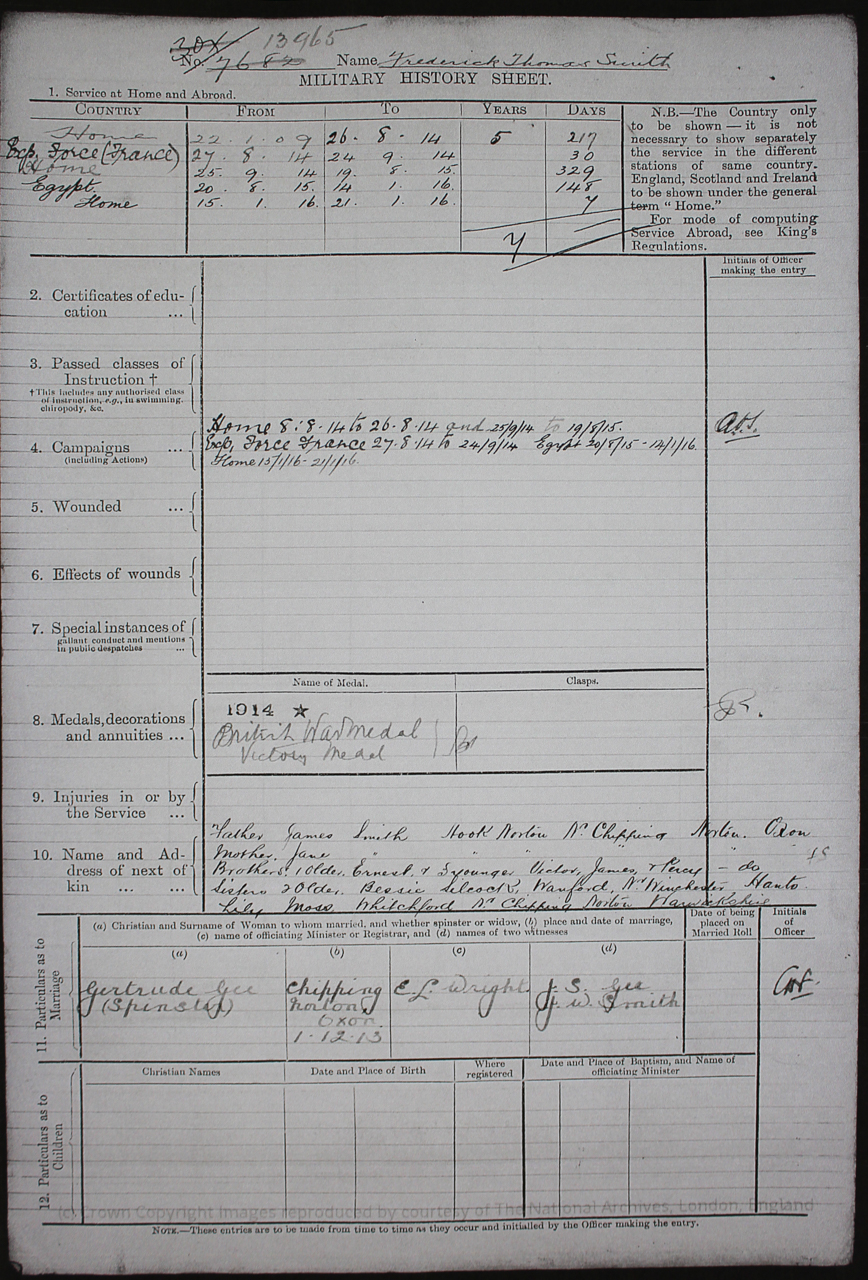 30x 13965
No. 7682 Name Frederick Thomas Smith
MILITARY HISTORY SHEET.
1. Service at Home and Abroad.
COUNTRY FROM TO YEARS DAYS
Home 22 1 09 26 8 14 5 217
Exp. Force (France) 27 8 14 24 9 14 30
Home 25 9 14 19 8 15 329
Egypt 20 8 15 14 1 16 148
Home 15 1 16 21 1 16 7
7
N.B.—The Country only
to be shown — it is not
necessary to show separately
the service in the different
stations of same country.
England, Scotland and Ireland
to be shown under the general
term "Home."
For mode of computing
Service Abroad, see King's
Regulations.
Initials of Officer
making the entry
2. Certificates of edu-
cation ...
3. Passed classes of
Instruction †
† This includes any authorised class
of instruction, e.g., in swimming,
chiropody, &c.
Home 8.8.14 to 26.8.14 and 25/9/14 to 19/8/15.
4. Campaigns ... Exp. Force France 27.8.14 to 24/9/14 Egypt 20/8/15 - 14/1/16.
(including Actions) Home 15/1/16 - 21/1/16.
5. Wounded ...
6. Effects of wounds
7. Special instances of
gallant conduct and mentions
in public despatches ...
Name of Medal. Clasps.
8. Medals, decorations
and annuities ...
1914 ★
British War Medal
Victory Medal
9. Injuries in or by
the Service ...
10. Name and Ad-
dress of next of
kin ... ...
Father James Smith Hook Norton Nr Chipping Norton. Oxon
Mother. Jane " " " "
Brothers. 1 Older. Ernest. & 3 younger Victor, James, & Percy - do
Sisters 2 Older. Bessie Silcock, Nr Winchester Hants.
Lily Moss, Whitchford Nr Chipping Norton Warwickshire
11. Particulars as to
Marriage
(a) Christian and Surname of Woman to whom married, and whether spinster or widow, (b) place and date of marriage,
(c) name of officiating Minister or Registrar, and (d) names of two witnesses
Date of being
placed on
Married Roll
Initials
of
Officer
(a) (b) (c) (d)
Gertrude Gee Chipping E. L. Wright J. S. Gee
(Spinster) Norton, J. W. Smith
Oxon
1-12-13
12. Particulars as to
Children
Christian Names Date and Place of Birth Where
registered Date and Place of Baptism, and Name of
officiating Minister
(c) Crown Copyright Images reproduced by courtesy of The National Archives, London, England
NOTE.—These entries are to be made from time to time as they occur and initialled by the Officer making the entry.